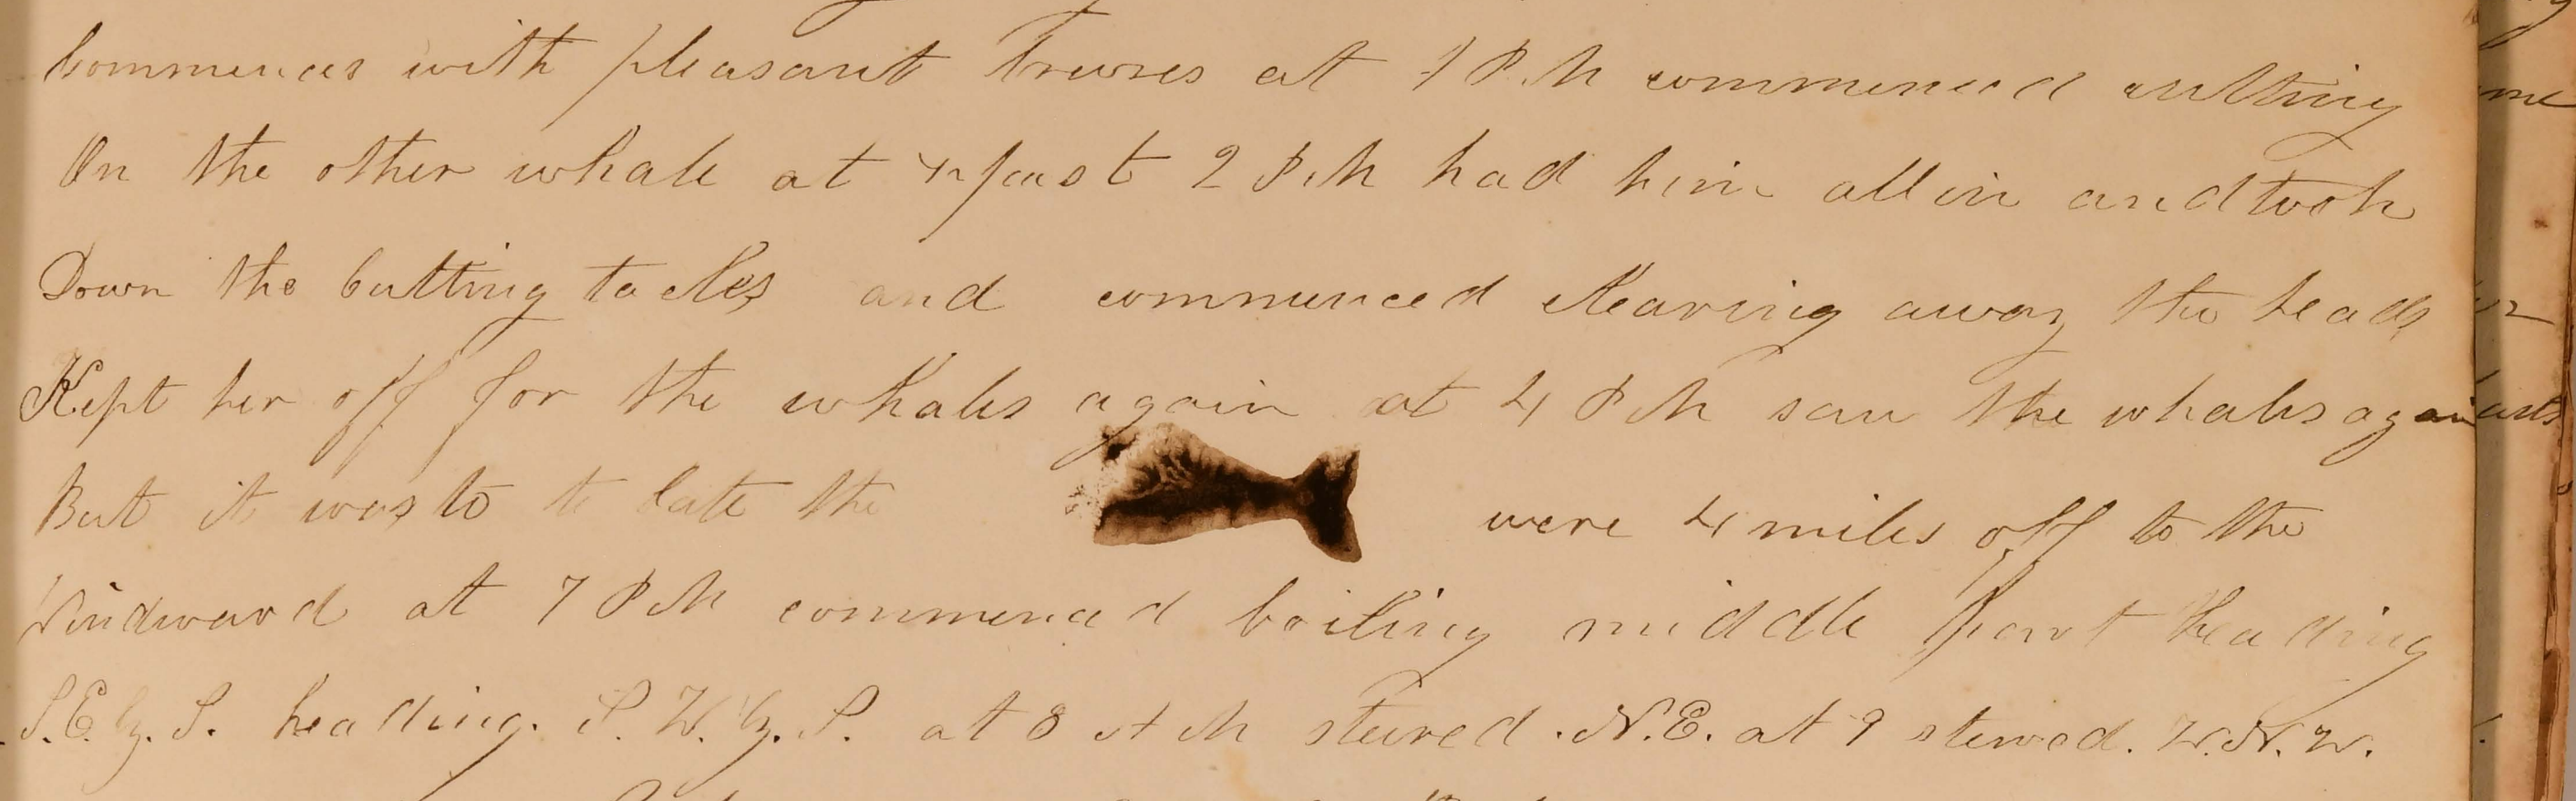 Commences with pleasant breeses at 1 P.M commenced cutting
On the other whale at past 2 P.M had him all in and took
Down the Cutting tackles and commenced Clearing away the heads
Kept her off for the whales again at 4 P M saw the whales again
But it was to to late the were 4 miles off to the
Windward at 7 P M commenced boiling middle part heading
S.E. by. S. heading. S. W. by. S. at 8 A M steered. N.E. at 9 steered. W.N.W.